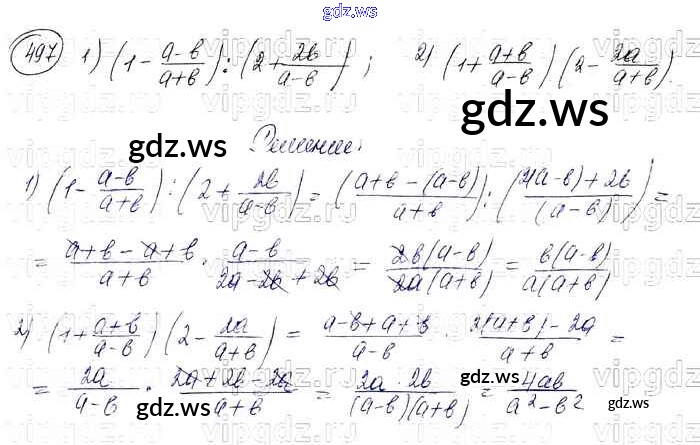 gdz.ws
497 1) (1 - (a-b)/(a+b)) : (2 + 2b/(a-b)); 2) (1 + (a+b)/(a-b)) (2 - 2a/(a+b)).
gdz.ws gdz.ws
Решение:
1) (1 - (a-b)/(a+b)) : (2 + 2b/(a-b)) = ((a+b-(a-b))/(a+b)) : ((2(a-b)+2b)/(a-b)) =
= (a+b-a+b)/(a+b) · (a-b)/(2a-2b+2b) = 2b(a-b)/2a(a+b) = b(a-b)/a(a+b)
2) (1 + (a+b)/(a-b)) (2 - 2a/(a+b)) = (a-b+a+b)/(a-b) · (2(a+b)-2a)/(a+b) =
= 2a/(a-b) · (2a+2b-2a)/(a+b) = 2a·2b/(a-b)(a+b) = 4ab/(a²-b²)
gdz.ws gdz.ws